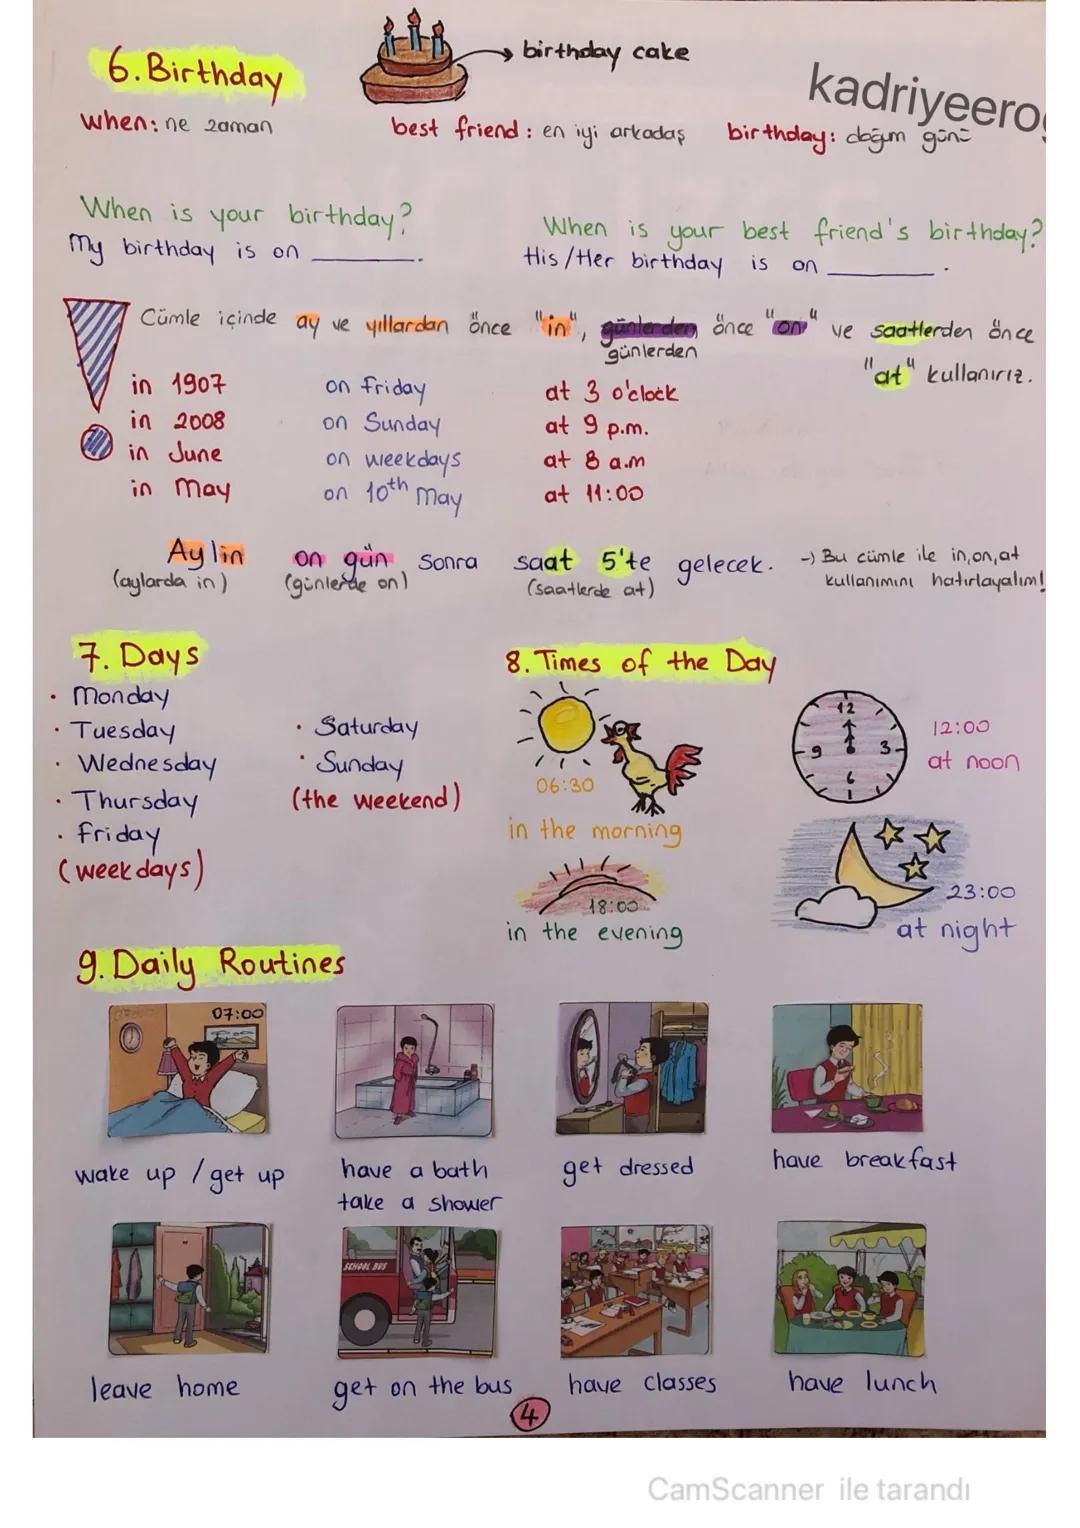 6. Birthday
birthday cake
kadriyeero
when: ne zaman
best friend: en iyi arkadaş
birthday: doğum günü
When is your birthday?
My birthday is on ______.
When is your best friend's birthday?
His/Her birthday is on ______.
Cümle içinde ay ve yıllardan önce "in", günlerden önce "on" ve saatlerden önce
günlerden
"at" kullanırız.
in 1907
in 2008
in June
in May
on Friday
on Sunday
on weekdays
on 10th May
at 3 o'clock
at 9 p.m.
at 8 a.m
at 11:00
Aylin on gün sonra saat 5'te gelecek.
(aylarda in) (günlerde on) (saatlerde at)
→) Bu cümle ile in, on, at
kullanımını hatırlayalım!
7. Days
· Monday
· Tuesday
· Wednesday
· Thursday
· Friday
(weekdays)
· Saturday
· Sunday
(the weekend)
8. Times of the Day
06:30
in the morning
12
3
6
9
12:00
at noon
18:00
in the evening
23:00
at night
9. Daily Routines
07:00
wake up / get up
have a bath
take a shower
get dressed
have breakfast
leave home
SCHOOL BUS
get on the bus
have classes
have lunch
4
CamScanner ile tarandı